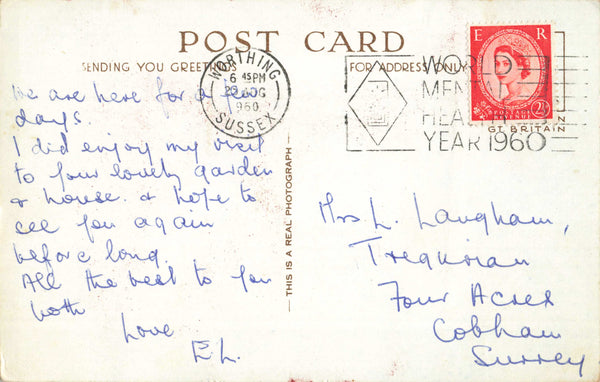 POST CARD
SENDING YOU GREETINGS
FOR ADDRESS ONLY
WORTHING
6 45PM
AUG
1960
SUSSEX
WORLD
MENTAL
HEALTH
YEAR 1960
E R
POSTAGE
REVENUE
2½
GT. BRITAIN
We are here for a few
days.
I did enjoy my visit
to your lovely garden
& house. & hope to
see you again
before long.
All the best to you
both
Love
E.L.
THIS IS A REAL PHOTOGRAPH
Mrs L. Langham,
Four Acres
Cobham
Surrey